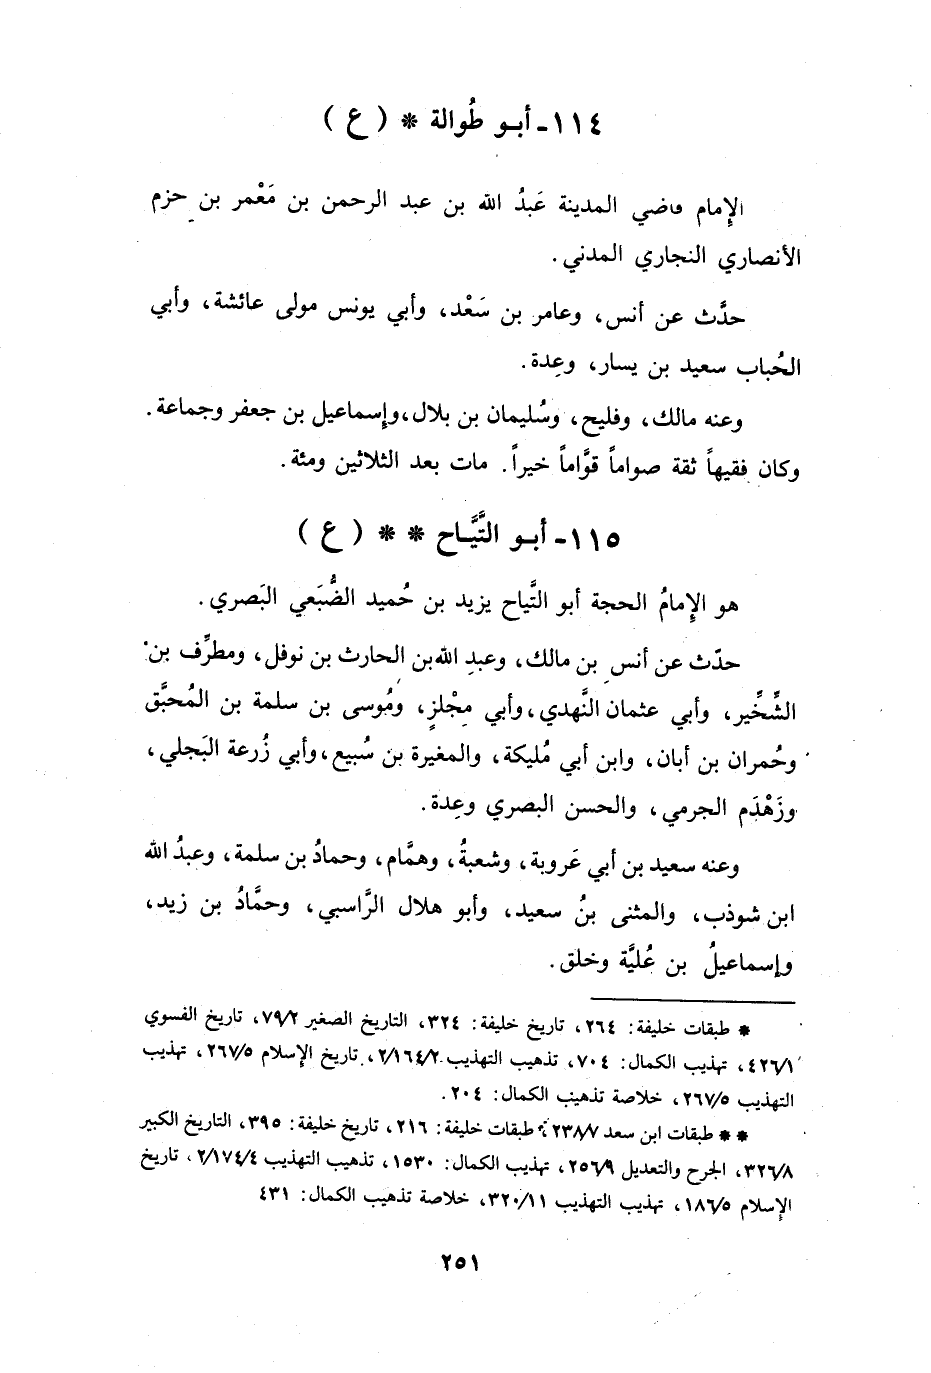 ١١٤ ـ أبو طُوالة * ( ع )
الإمام قاضي المدينة عَبدُ الله بن عبد الرحمن بن مَعْمر بن حزم
الأنصاري النجاري المدني .
حدَّث عن أنس، وعامر بن سَعْد، وأبي يونس مولى عائشة، وأبي
الحُباب سعيد بن يسار، وعِدة .
وعنه مالك، وفليح، وسُليمان بن بلال، وإسماعيل بن جعفر وجماعة .
وكان فقيهاً ثقة صواماً قوَّاماً خيراً. مات بعد الثلاثين ومئة .
١١٥ ـ أبو التَّيَّاح * * ( ع )
هو الإمامُ الحجة أبو التَّياح يزيد بن حُميد الضُّبَعي البَصري .
حدّث عن أنس بن مالك، وعبدِ الله بن الحارث بن نوفل، ومطرِّف بن
الشِّخِّير، وأبي عثمان النَّهدي، وأبي مِجْلزٍ، ومُوسى بن سلمة بن المُحبَّق
وحُمران بن أبان، وابن أبي مُليكة، والمغيرة بن سُبيع، وأبي زُرعة البَجلي،
وزَهْدَم الجرمي، والحسن البصري وعِدة .
وعنه سعيد بن أبي عَروبة، وشعبةُ، وهمَّام، وحمادُ بن سلمة، وعبدُ الله
ابن شوذب، والمثنى بنُ سعيد، وأبو هلال الرَّاسبي، وحمَّادُ بن زيد،
وإسماعيلُ بن عُليَّة وخلق .
* طبقات خليفة: ٢٦٤، تاريخ خليفة: ٣٢٤، التاريخ الصغير ٧٩/٢، تاريخ الفسوي
٤٢٦/١، تهذيب الكمال: ٧٠٤، تذهيب التهذيب ٢/١٦٤/٢، تاريخ الإسلام ٢٦٧/٥، تهذيب
التهذيب ٢٦٧/٥، خلاصة تذهيب الكمال: ٢٠٤ .
* * طبقات ابن سعد ٢٣٨/٧، طبقات خليفة: ٢١٦، تاريخ خليفة: ٣٩٥، التاريخ الكبير
٣٢٦/٨، الجرح والتعديل ٢٥٦/٩، تهذيب الكمال: ١٥٣٠، تذهيب التهذيب ٢/١٧٤/٤، تاريخ
الإسلام ١٨٦/٥، تهذيب التهذيب ٣٢٠/١١، خلاصة تذهيب الكمال: ٤٣١
٢٥١